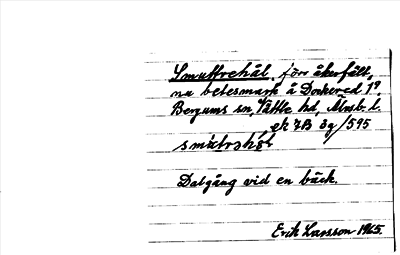 Smuttrehål, förr åkerfält,
nu betesmark å Dockered 1º,
Bergums sn, Vättle hd, Älvsb. l.
ek 7B 3g/595
Dalgång vid en bäck.
Erik Larsson 1965.